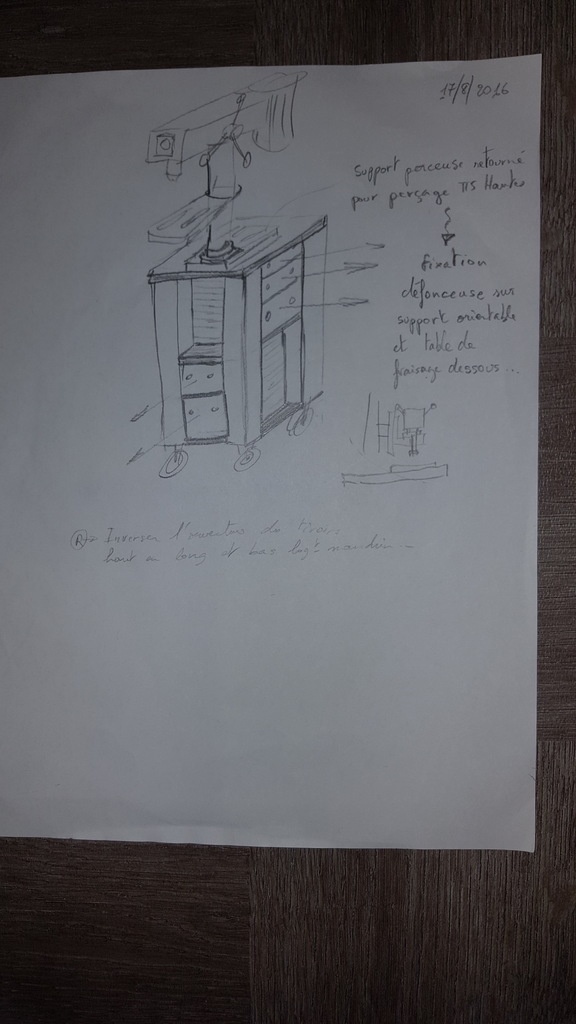 17/8/2016
support perceuse retourné
pour perçage TTS Hautes
fixation
défonceuse sur
support orientable
et table de
fraisage dessous...
(R) Inverser l'ouverture de tiroir
haut en long et bas